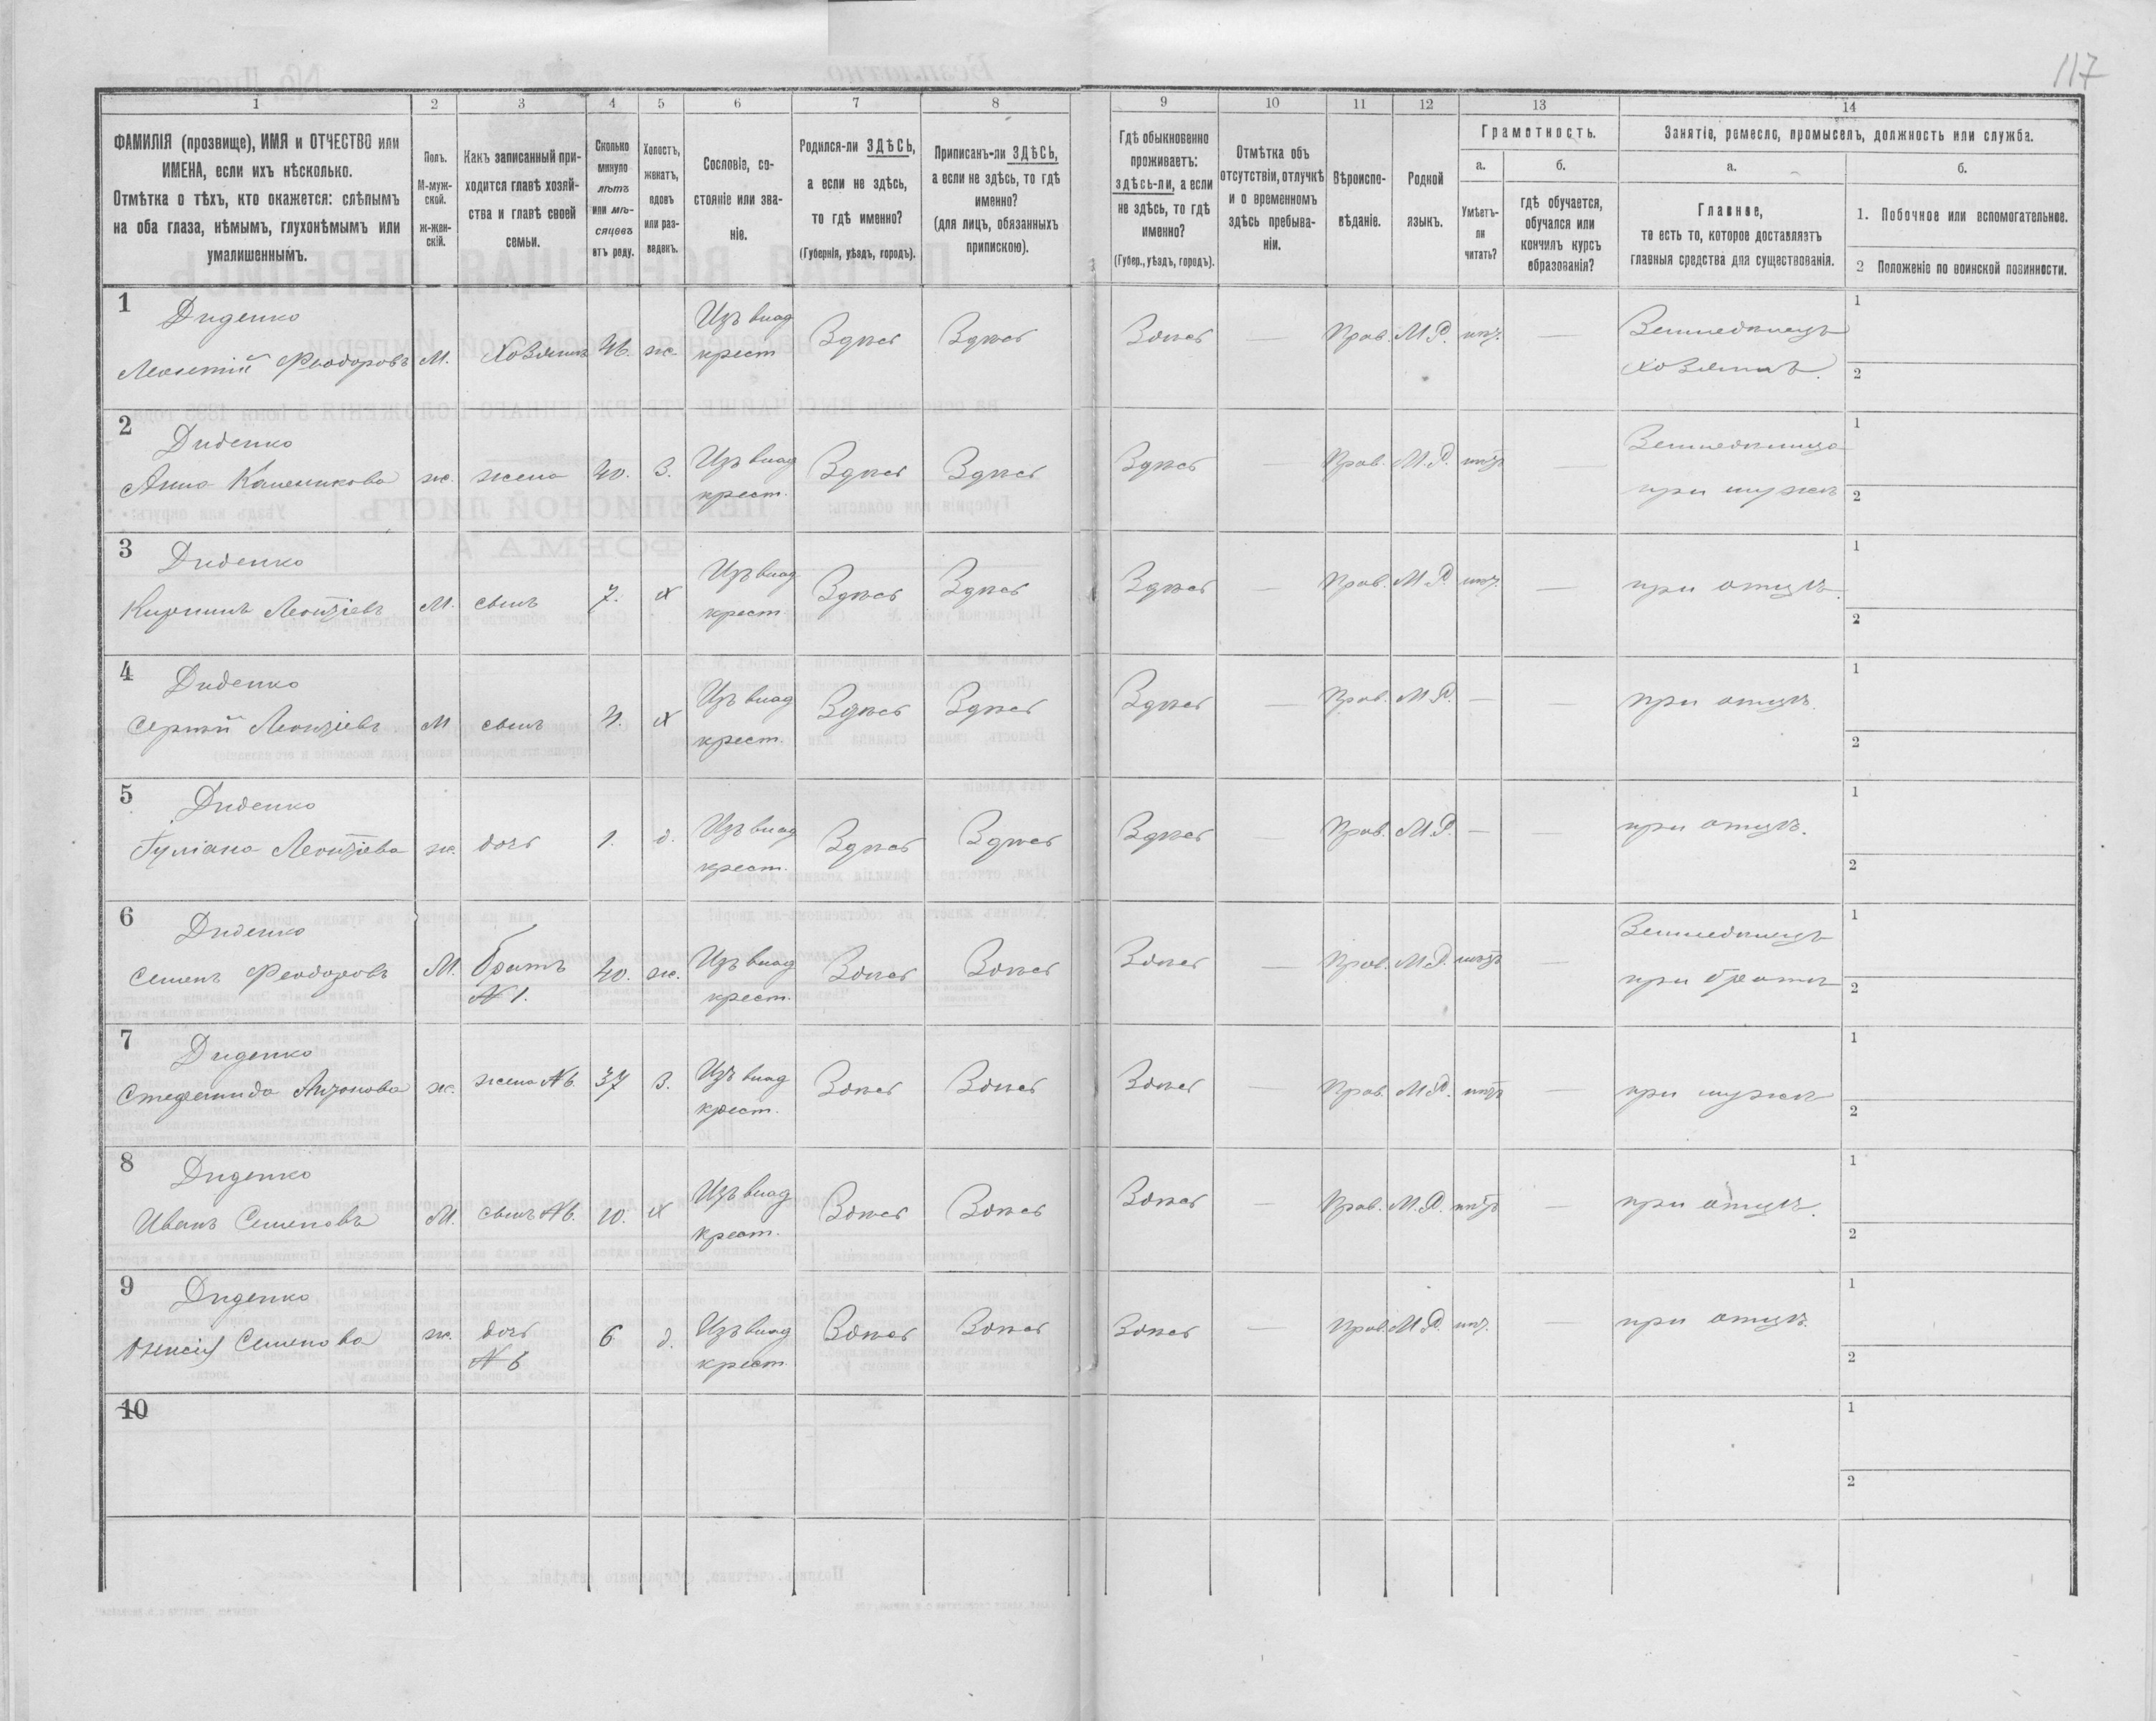 117
1 2 3 4 5 6 7 8 9 10 11 12 13 14
ФАМИЛІЯ (прозвище), ИМЯ и ОТЧЕСТВО или
ИМЕНА, если ихъ нѣсколько.
Отмѣтка о тѣхъ, кто окажется: слѣпымъ
на оба глаза, нѣмымъ, глухонѣмымъ или
умалишеннымъ.
Полъ.
М-муж-
ской.
ж-жен-
скій.
Какъ записанный при-
ходится главѣ хозяй-
ства и главѣ своей
семьи.
Сколько
минуло
лѣтъ
или мѣ-
сяцевъ
отъ роду.
Холостъ,
женатъ,
вдовъ
или раз-
веденъ.
Сословіе, со-
стояніе или зва-
ніе.
Родился-ли ЗДѢСЬ,
а если не здѣсь,
то гдѣ именно?
(Губернія, уѣздъ, городъ).
Приписанъ-ли ЗДѢСЬ,
а если не здѣсь, то гдѣ
именно?
(для лицъ, обязанныхъ
припискою).
Гдѣ обыкновенно
проживаетъ:
здѣсь-ли, а если
не здѣсь, то гдѣ
именно?
(Губер., уѣздъ, городъ).
Отмѣтка объ
отсутствіи, отлучкѣ
и о временномъ
здѣсь пребыва-
ніи.
Вѣроиспо-
вѣданіе.
Родной
языкъ.
Грамотность.
а.
Умѣетъ-
ли
читать?
б.
гдѣ обучается,
обучался или
кончилъ курсъ
образованія?
Занятіе, ремесло, промыселъ, должность или служба.
а.
Главное,
то есть то, которое доставляетъ
главныя средства для существованія.
б.
1. Побочное или вспомогательное.
2 Положеніе по воинской повинности.
1 Диденко
Феодоровъ М. Хозяинъ 46. ж. Изъ влад. крест Здѣсь Здѣсь Здѣсь Прав. М.Р. нѣт. — Земледѣлецъ хозяинъ. 1 2
2 Диденко
Анна ж. жена 40. З. Изъ влад крест. Здѣсь Здѣсь Здѣсь — Прав. М.Р. нѣтъ — Земледѣлица при мужѣ 1 2
3 Диденко
Леонтіевъ М. сынъ 7. х Изъ влад крест Здѣсь Здѣсь Здѣсь — Прав. М.Р. нѣт. — при отцѣ. 1 2
4 Диденко
Сергій Леонтіевъ М сынъ 4. х Изъ влад крест. Здѣсь Здѣсь Здѣсь — Прав. М.Р. — — при отцѣ. 1 2
5 Диденко
Іуліана Леонтіева ж. дочь 1. д. Изъ влад крест. Здѣсь Здѣсь Здѣсь — Прав. М.Р. — — при отцѣ. 1 2
6 Диденко
Семенъ Феодоровъ М. братъ N 1. 40. ж. Изъ влад крест. Здѣсь Здѣсь Здѣсь — Прав. М.Р. нѣтъ — Земледѣлецъ при братѣ 1 2
7 Диденко
Стефанида Антонова ж. жена N 6. 37 З. Изъ влад крест. Здѣсь Здѣсь Здѣсь — Прав. М.Р. нѣтъ — при мужѣ 1 2
8 Диденко
Иванъ Семеновъ М. сынъ N 6. 10. х Изъ влад крест. Здѣсь Здѣсь Здѣсь — Прав. М.Р. нѣтъ — при отцѣ. 1 2
9 Диденко
Семенова ж. дочь N 6 6 д. Изъ влад крест Здѣсь Здѣсь Здѣсь — Прав. М.Р. нѣт. — при отцѣ. 1 2
10 1 2